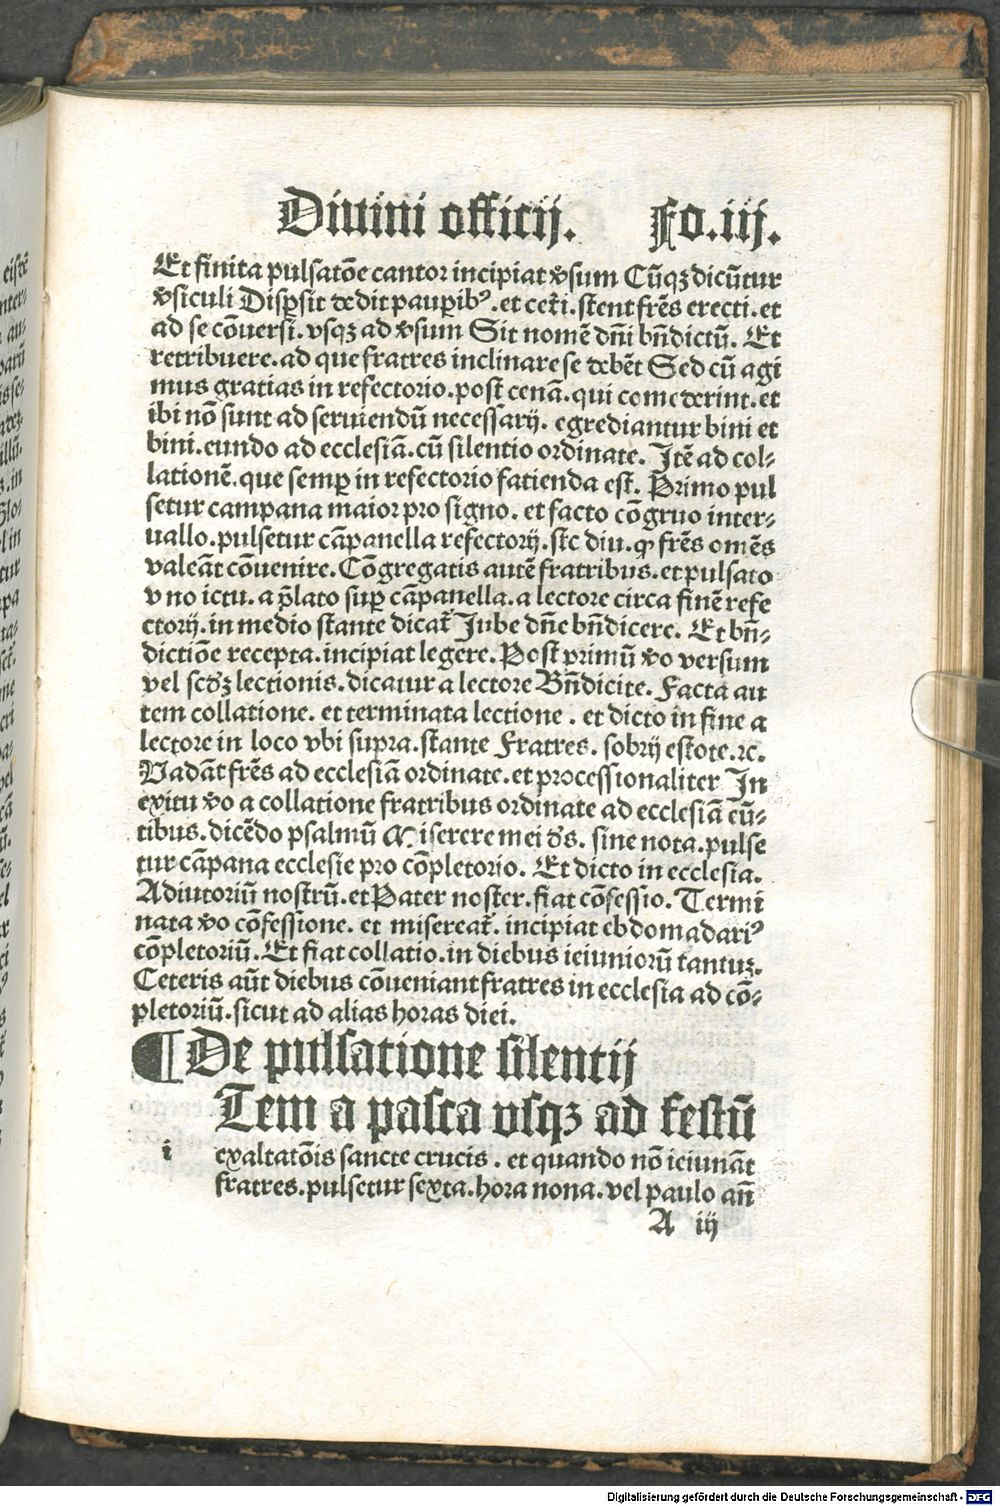 Diuini officij. Fo.iij.
Et finita pulsatõe cantor incipiat ꝟsum Cũqꝫ dicũtur
ꝟsiculi Disꝑsit dedit pauꝑibꝰ.et ceťi.stent frẽs erecti.et
ad se cõuersi.vsqꝫ ad ꝟsum Sit nomẽ dñi bñdictũ. Et
retribuere.ad que fratres inclinare se debẽt Sed cũ agi
mus gratias in refectorio.post cenã.qui comederint.et
ibi nõ sunt ad seruiendũ necessarij. egrediantur bini et
bini.eundo ad ecclesiã.cũ silentio ordinate. Itẽ ad col⸗
lationẽ.que semꝑ in refectorio fatienda est. Primo pul
setur campana maior pro signo. et facto cõgruo inter⸗
uallo.pulsetur cãpanella refectorij.sic diu.ꝙ frẽs omẽs
valeãt cõuenire.Cõgregatis autẽ fratribus.et pulsato
v no ictu.a p̃lato suꝑ cãpanella.a lectore circa finẽ refe
ctorij.in medio stante dicať Jube dñe bñdicere. Et bñ⸗
dictiõe recepta.incipiat legere.Post primũ ꝟo versum
vel scđꝫ lectionis.dicatur a lectore Bñdicite. Facta au
tem collatione. et terminata lectione . et dicto in fine a
lectore in loco vbi supra.stante Fratres. sobrij estote.⁊c.
Vadãt frẽs ad ecclesiã ordinate.et processionaliter In
exitu ꝟo a collatione fratribus ordinate ad ecclesiã eũ⸗
tibus.dicẽdo psalmũ Miserere mei đs. sine nota.pulse
tur cãpana ecclesie pro cõpletorio. Et dicto in ecclesia.
Adiutoriũ nostrũ.et Pater noster.fiat cõfessio. Termi
nata ꝟo cõfessione. et misereať. incipiat ebdomadariꝰ
cõpletoriũ. Et fiat collatio.in diebus ieiuniorũ tantuꝫ.
Ceteris aũt diebus cõueniant fratres in ecclesia ad cõ⸗
pletoriũ.sicut ad alias horas diei.
¶ De pulsatione silentij
i Tem a pasca vsqꝫ ad festũ
exaltatõis sancte crucis . et quando nõ ieiunãt
fratres.pulsetur sexta.hora nona.vel paulo añ
A iij
Digitalisierung gefördert durch die Deutsche Forschungsgemeinschaft - DFG